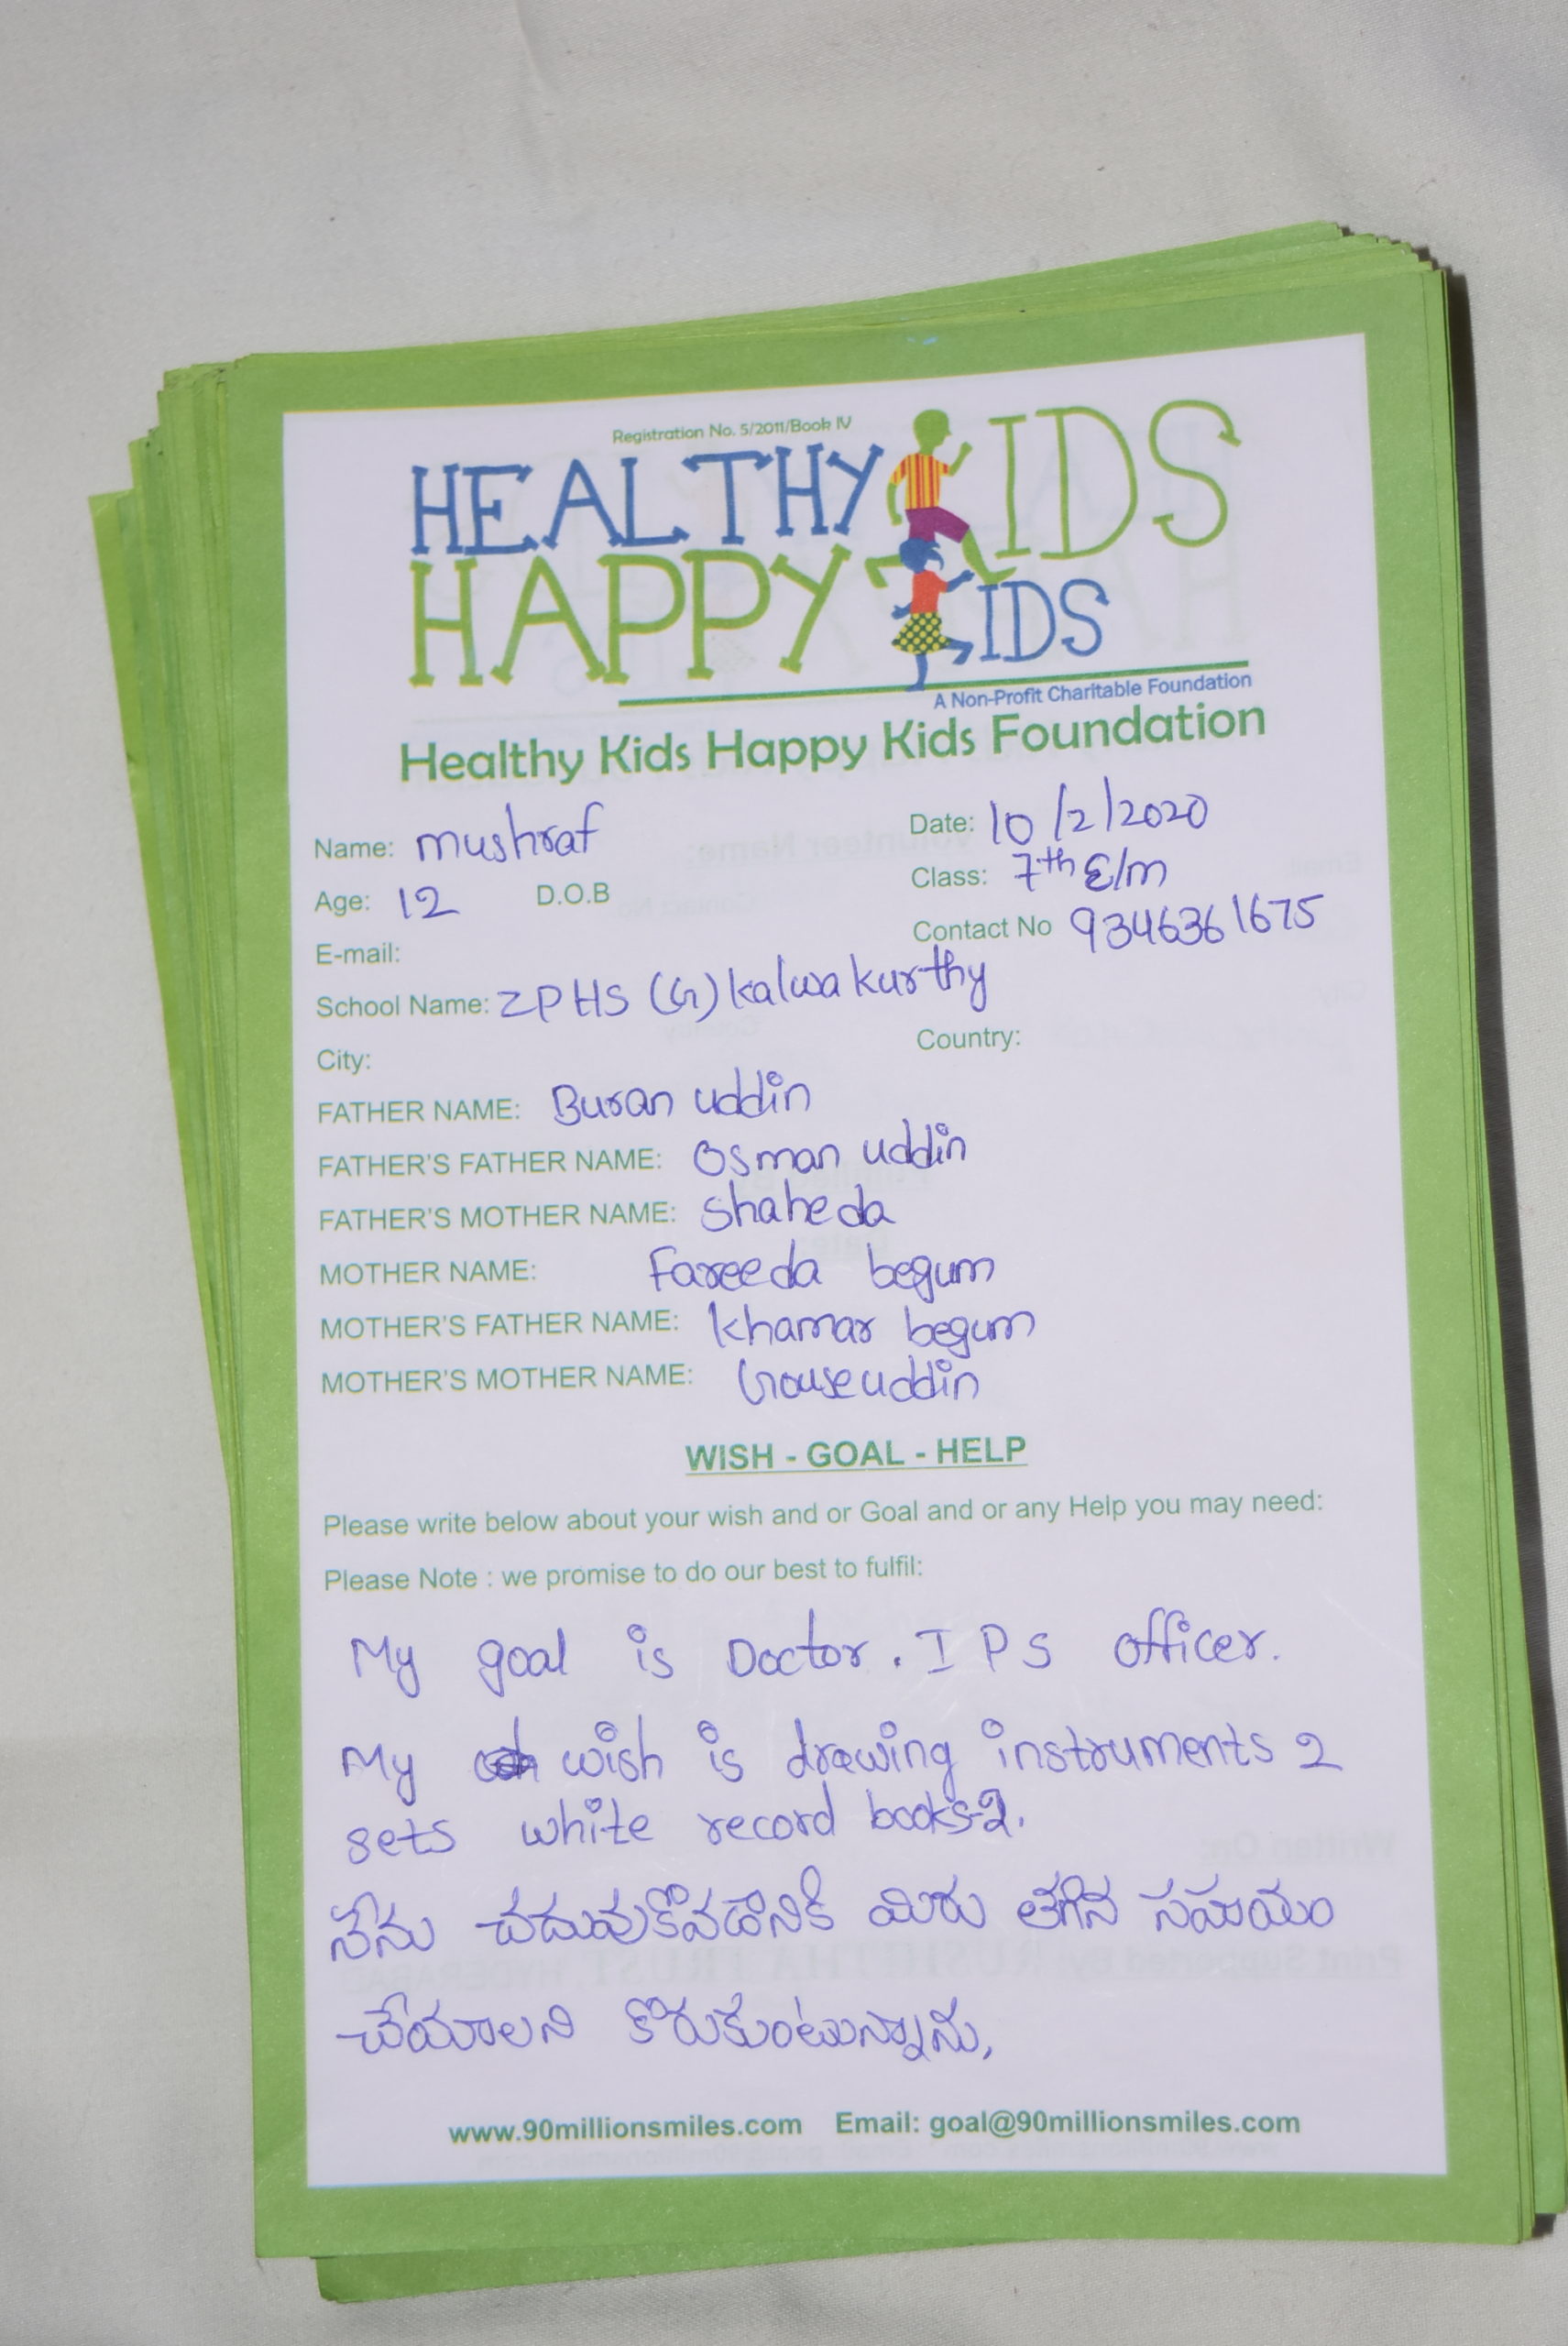 Registration No. 5/2011/Book IV
HEALTHY KIDS
HAPPY KIDS
A Non-Profit Charitable Foundation
Healthy Kids Happy Kids Foundation
Name: mushraf Date: 10/2/2020
Age: 12 D.O.B Class: 7th E/m
E-mail: Contact No 9346361675
School Name: ZPHS (G) kalwakurthy
City: Country:
FATHER NAME: Buran uddin
FATHER'S FATHER NAME: Osman uddin
FATHER'S MOTHER NAME: Shaheda
MOTHER NAME: Fareeda begum
MOTHER'S FATHER NAME: Khamar begum
MOTHER'S MOTHER NAME: Gouseuddin
WISH - GOAL - HELP
Please write below about your wish and or Goal and or any Help you may need:
Please Note : we promise to do our best to fulfil:
My goal is Doctor. I P S officer.
My wish is drawing instruments 2
sets white record books-2.
నేను చదువుకోవడానికి మిరు తగిన సహయం
చేయాలని కోరుకుంటున్నాను,
www.90millionsmiles.com Email: goal@90millionsmiles.com